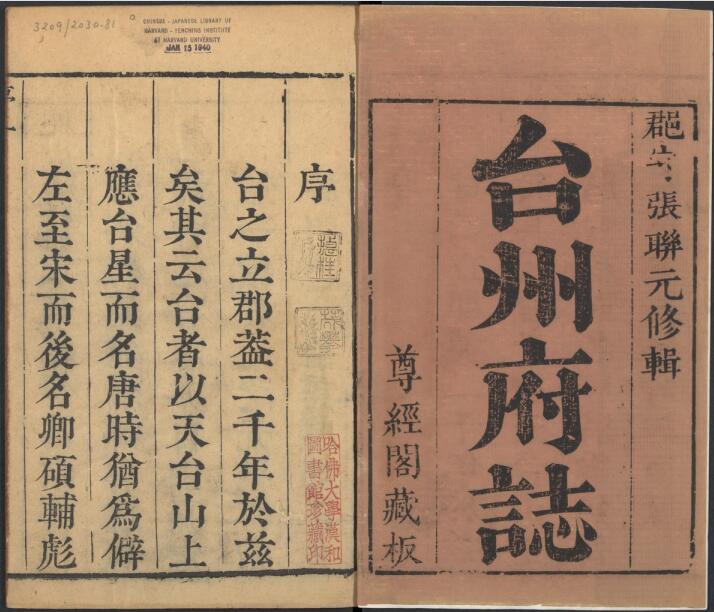 郡守張聯元修輯
台州府誌
尊經閣藏板
序
台之立郡葢二千年於茲
矣其云台者以天台山上
應台星而名唐時猶爲僻
左至宋而後名卿碩輔彪
哈佛大學漢和
圖書館珍藏印
3209/2030.81
CHINESE - JAPANESE LIBRARY OF
HARVARD - YENCHING INSTITUTE
AT HARVARD UNIVERSITY
JAN 15 1940